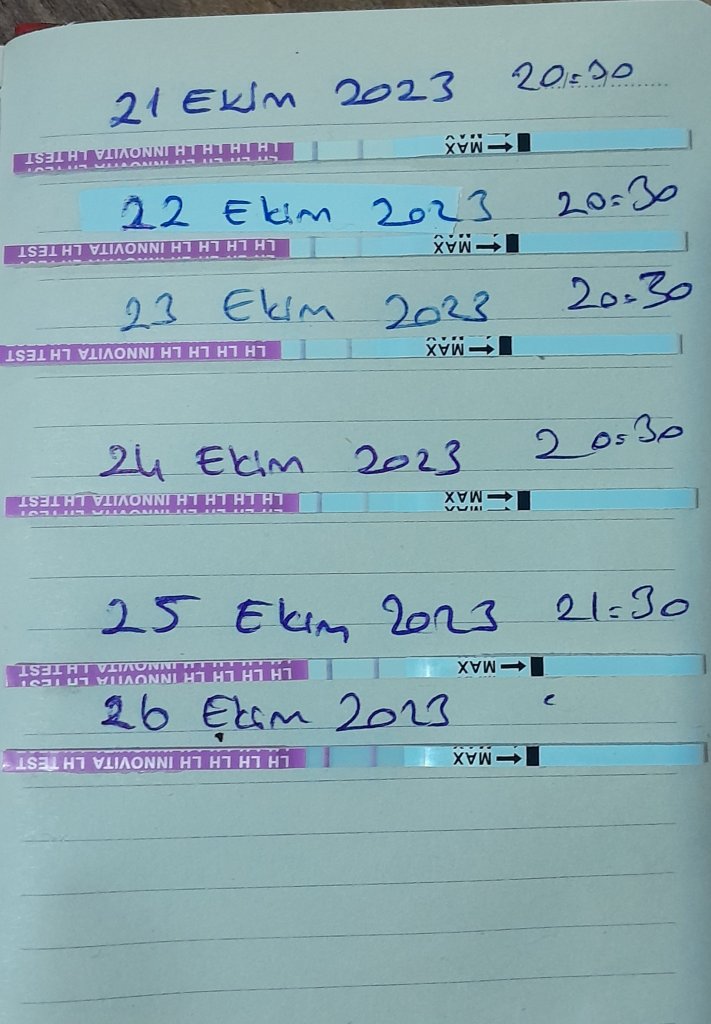 21 Ekim 2023 20:30
LH LH LH LH INNOVITA LH TEST
MAX
22 Ekim 2023 20:30
LH LH LH LH INNOVITA LH TEST
MAX
23 Ekim 2023 20:30
LH LH LH LH INNOVITA LH TEST
MAX
24 Ekim 2023 20:30
LH LH LH LH INNOVITA LH TEST
MAX
25 Ekim 2023 21:30
LH LH LH LH INNOVITA LH TEST
MAX
26 Ekim 2023
LH LH LH LH INNOVITA LH TEST
MAX